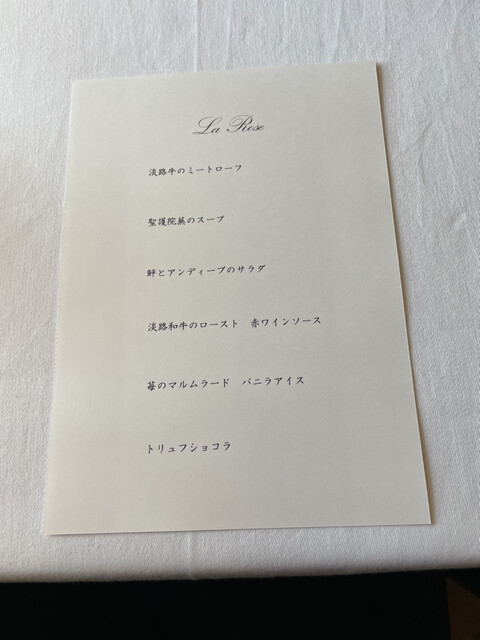 La Rose
淡路牛のミートローフ
聖護院蕪のスープ
鮃とアンディーブのサラダ
淡路和牛のロースト　赤ワインソース
苺のマルムラード　バニラアイス
トリュフショコラ